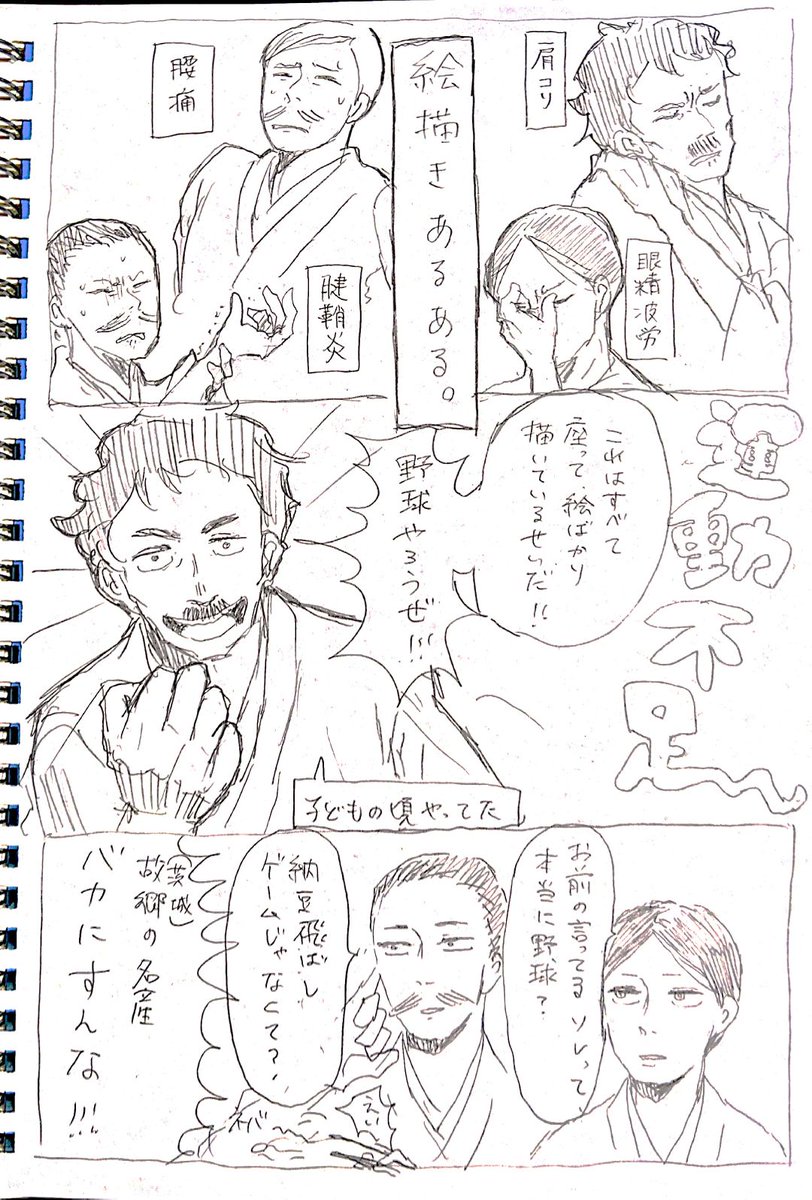 肩コリ
眼精疲労
絵描きあるある。
腰痛
腱鞘炎
運動不足
これはすべて
座って絵ばかり
描いているせいだ!!
野球やろうぜ!!!
子どもの頃やってた
お前の言ってるソレって、
本当に野球?
納豆飛ばし
ゲームじゃなくて?
えい
ネバ〜
(茨城)
故郷の名産
バカにすんな!!!